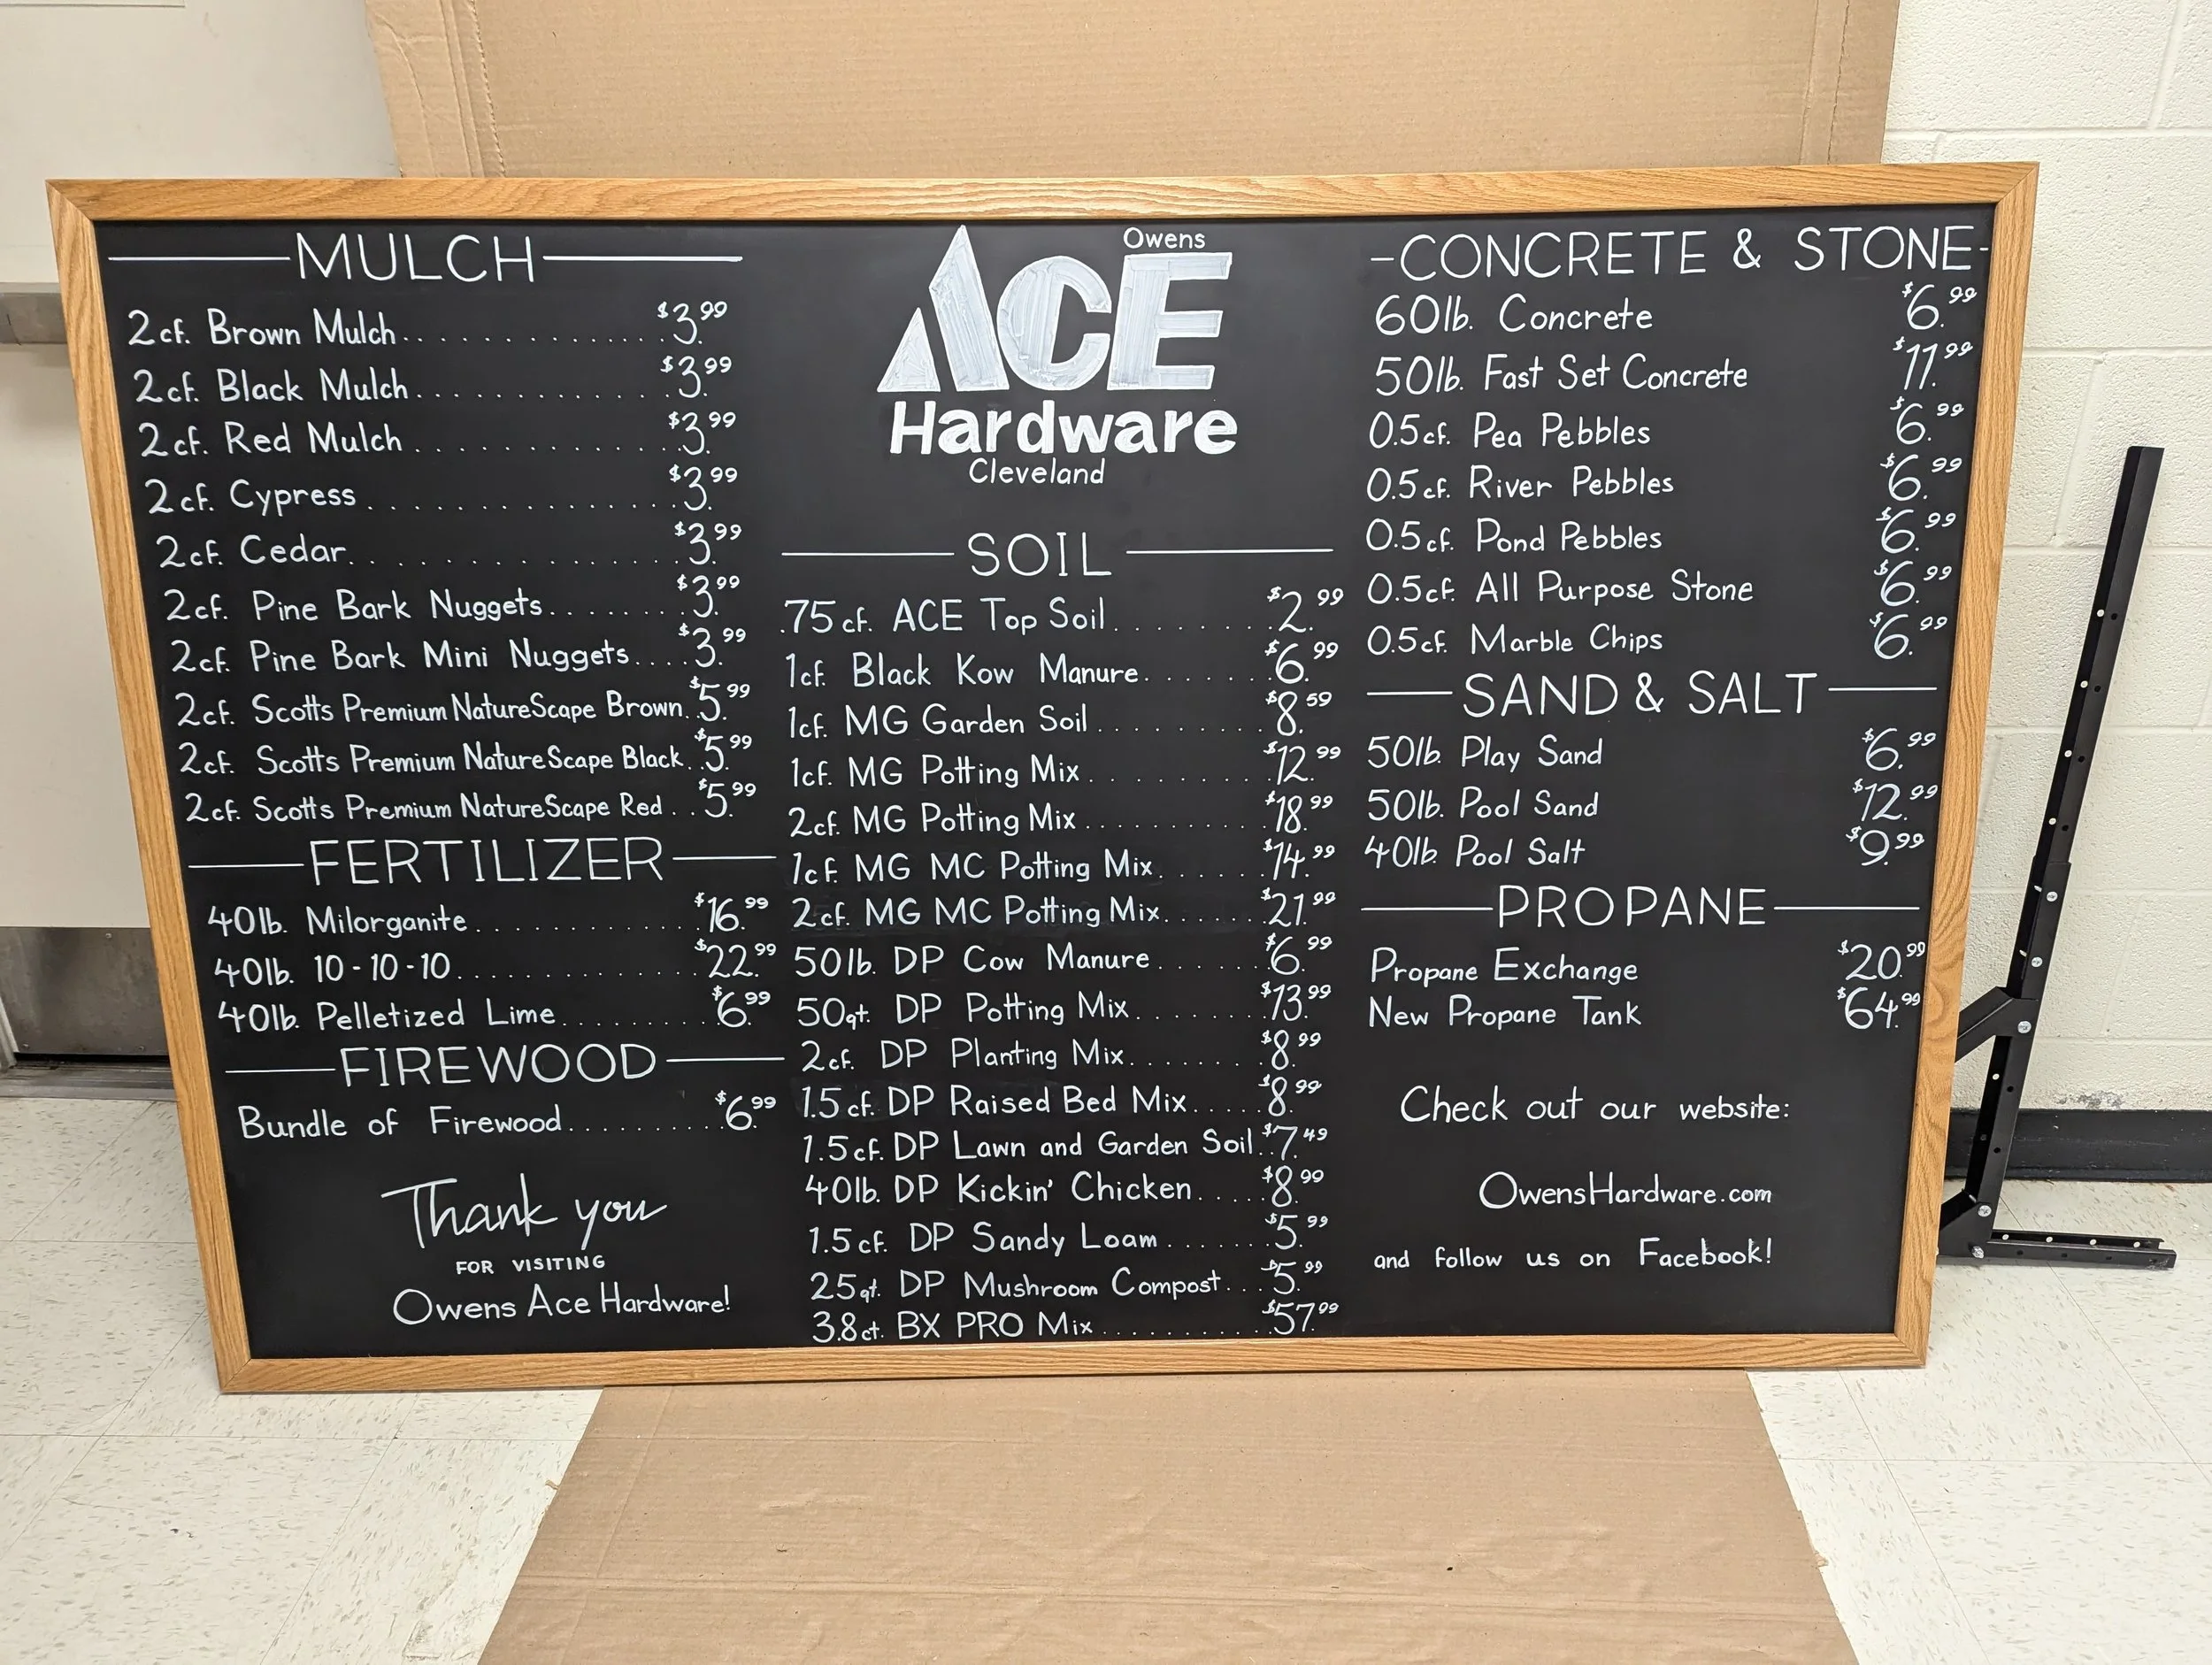 MULCH
2cf. Brown Mulch............. $3.99
2cf. Black Mulch............. $3.99
2cf. Red Mulch............ $3.99
2cf. Cypress............... $3.99
2cf. Cedar............... $3.99
2cf. Pine Bark Nuggets....... $3.99
2cf. Pine Bark Mini Nuggets.... $3.99
2cf. Scotts Premium NatureScape Brown.. $5.99
2cf. Scotts Premium NatureScape Black.. $5.99
2cf. Scotts Premium NatureScape Red... $5.99
FERTILIZER
40lb. Milorganite............. $16.99
40lb. 10-10-10.............. $22.99
40lb. Pelletized Lime......... $6.99
FIREWOOD
Bundle of Firewood.......... $6.99
Thank you
FOR VISITING
Owens Ace Hardware!
Owens
ACE
Hardware
Cleveland
SOIL
.75cf. ACE Top Soil......... $2.99
1cf. Black Kow Manure....... $6.99
1cf. MG Garden Soil......... $8.59
1cf. MG Potting Mix.......... $12.99
2cf. MG Potting Mix.......... $18.99
1cf. MG MC Potting Mix...... $14.99
2cf. MG MC Potting Mix...... $21.99
50lb. DP Cow Manure...... $6.99
50qt. DP Potting Mix....... $13.99
2cf. DP Planting Mix....... $8.99
1.5cf. DP Raised Bed Mix..... $8.99
1.5cf. DP Lawn and Garden Soil.. $7.49
40lb. DP Kickin' Chicken.... $8.99
1.5cf. DP Sandy Loam....... $5.99
25qt. DP Mushroom Compost... $5.99
3.8ct. BX PRO Mix........... $57.99
-CONCRETE & STONE-
60lb. Concrete $6.99
50lb. Fast Set Concrete $11.99
0.5cf. Pea Pebbles $6.99
0.5cf. River Pebbles $6.99
0.5cf. Pond Pebbles $6.99
0.5cf. All Purpose Stone $6.99
0.5cf. Marble Chips $6.99
SAND & SALT
50lb. Play Sand $6.99
50lb. Pool Sand $12.99
40lb. Pool Salt $9.99
PROPANE
Propane Exchange $20.99
New Propane Tank $64.99
Check out our website:
OwensHardware.com
and follow us on Facebook!